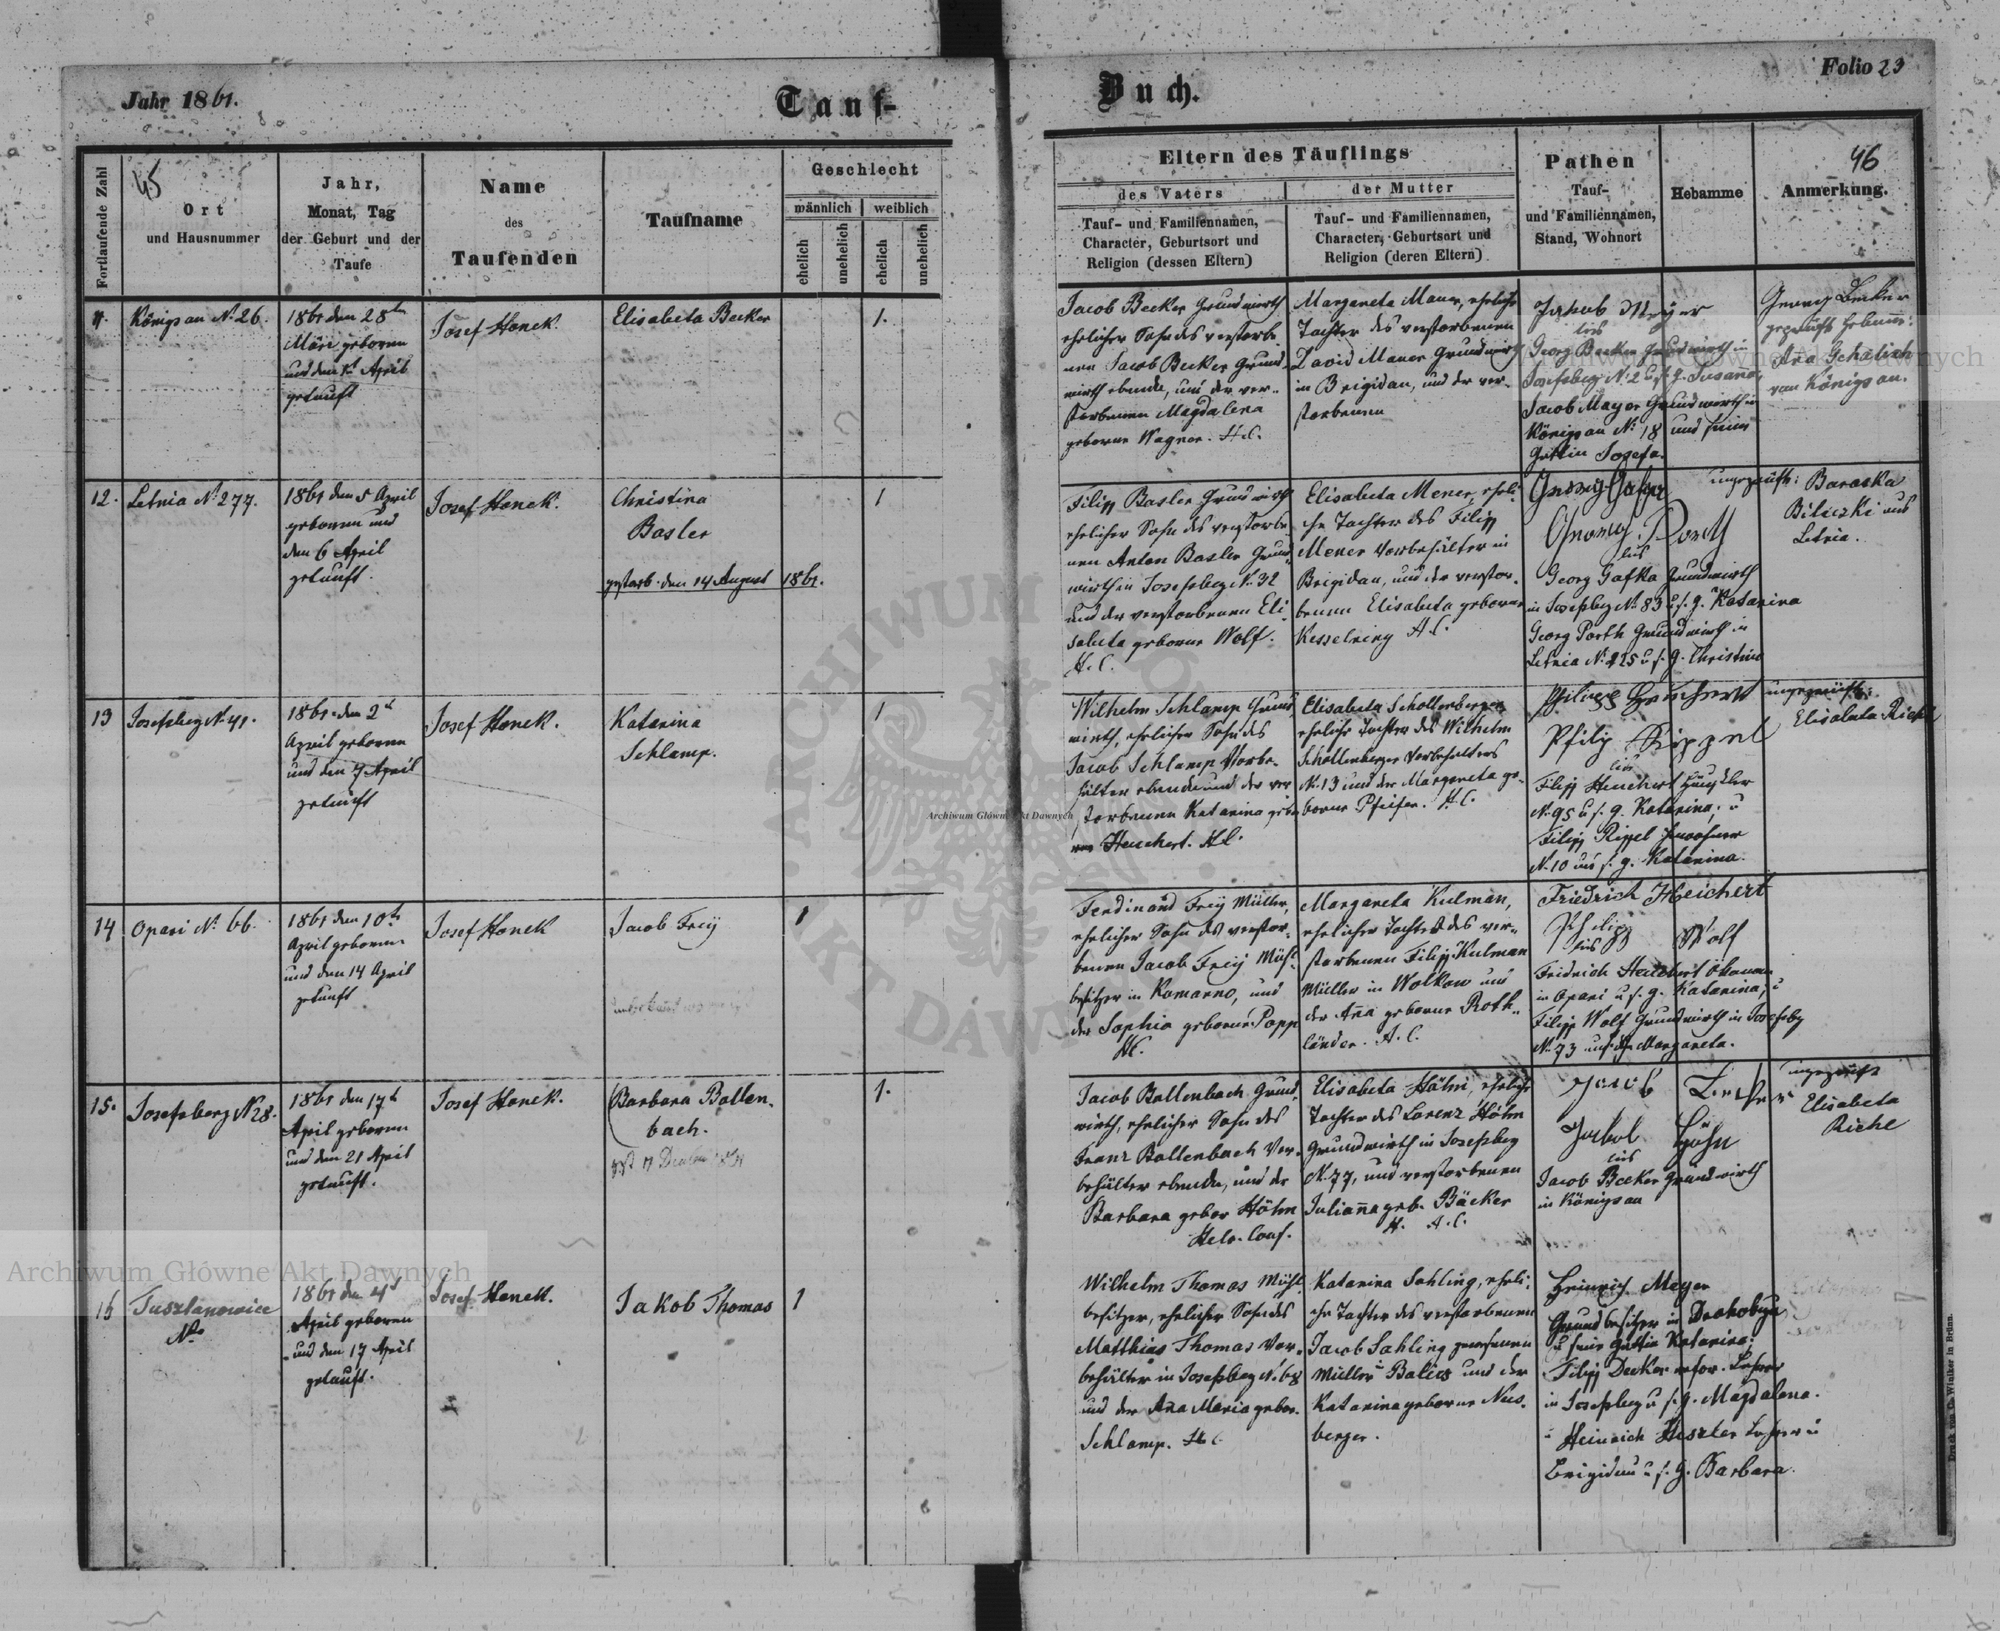 Jahr 1861.
Tauf-
Buch.
Folio 23
45
46
Fortlaufende Zahl
Ort
und Hausnummer
Jahr,
Monat, Tag
der Geburt und der
Taufe
Name
des
Taufenden
Taufname
Geschlecht
männlich
weiblich
ehelich
unehelich
ehelich
unehelich
Eltern des Täuflings
des Vaters
Tauf- und Familiennamen,
Character, Geburtsort und
Religion (dessen Eltern)
der Mutter
Tauf- und Familiennamen,
Character, Geburtsort und
Religion (deren Eltern)
Pathen
Tauf-
und Familiennamen,
Stand, Wohnort
Hebamme
Anmerkung.
Königsau No 26.
1861 den 28ten
März geboren
und den 1t April
getauft
Josef Honek.
Elisabeta Becker
1.
Jacob Becker Grundwirth
ehelicher Sohn des verstorbe-
nen Jacob Becker Grund-
wirth ebenda, und der ver-
storbenen Magdalena
geborne Wagner. H.C.
Margareta Mauer, eheliche
Tochter des verstorbenen
David Mauer Grundwirth
in Brigidau, und der ver-
storbenen
Jakob Meyer
Georg Becker Grundwirth in
Josefsberg No 2 u. s. g. Susanna,
Jacob Mayer Grundwirth in
Königsau No 18 und seine
Gattin Josefa.
Georg Becker
geprüfte Hebamme:
Ana Schalich
von Königsau.
12.
Letnia No 277.
1861 den 5 April
geboren und
den 6 April
getauft.
Josef Honek.
Christina
Basler
gestorb. den 14 August 1861.
1
Filipp Basler Grundwirth
ehelicher Sohn des verstorbe-
nen Anton Basler Grund-
wirth in Josefsberg No 32
und der verstorbenen Eli-
sabeta geborne Wolf.
H.C.
Elisabeta Mener, eheli-
che Tochter des Filipp
Mener Vorbehälter in
Brigidau, und der verstor-
benen Elisabeta geborne
Kesselring H.C.
Georg Gafka Grundwirth
in Josefsberg No 83 u. s. g. Katarina
Georg Porth Grundwirth in
Letnia No 225 u. s. g. Christina
ungeprüfte: Baraska
Biliczki aus
Letnia.
13
Josefsberg No 41.
1861 den 2t
April geboren
und den 7 April
getauft
Josef Honek.
Katarina
Schlamp.
1
Wilhelm Schlamp Grund-
wirth, ehelicher Sohn des
Jacob Schlamp Vorbe-
hälter ebenda und der ver-
storbenen Katarina gebo-
Heuchert. H.C.
Elisabeta Schollenberger
eheliche Tochter des Wilhelm
Schollenberger Vorbehälters
No 13 und der Margareta ge-
borne Pfeifer. H.C.
Philipp Heuchert
Philip Rippel
Filipp Heuchert Häusler
No 95 u. s. g. Katarina, u
Filipp Rippel Inwohner
No 10 und s. g. Katarina.
ungeprüfte:
Elisabeta Riehl
14
Opari No 66.
1861 den 10ten
April geboren
und den 14 April
getauft
Josef Honek
Jacob Freÿ
1
Ferdinand Freÿ Müller,
ehelicher Sohn des verstor-
benen Jacob Freÿ Mühl-
besitzer in Komarno, und
der Sophia geborne Popp
H.C.
Margareta Kulman,
ehelicher Tochter des ver-
storbenen Filipp Kulman
Müller in Wolkow und
der Ana geborne Roth-
länder. A.C.
Friedrich Heichert
Philipp Wolf
Fridrich Heuchert Ökonom
in Opari u. s. g. Katarina, u
Filipp Wolf Grundwirth in Josefsbg
No 73 und s. g. Margareta.
15.
Josefsberg No 28.
1861 den 17t
April geboren
und den 21 April
getauft.
Josef Honek.
Barbara Bollen-
bach.
1.
Jacob Bollenbach Grund-
wirth, ehelicher Sohn des
Franz Bollenbach Vor-
behälter ebenda, und der
Barbara gebor Höhn
Helv. Conf.
Elisabeta Höhn, eheliche
Tochter des Lorenz Höhn
Grundwirth in Josefsberg
No 77, und verstorbenen
Juliana geb. Bäcker
H. A.C.
Jacob Becker
Jakob Höhn
Jacob Becker Grundwirth
in Königsau
ungeprüfte
Elisabeta
Riehl
16
Tustanowice
No
1861 den 4t
April geboren
und den 17 April
getauft.
Josef Honek.
Jakob Thomas
1
Wilhelm Thomas Mühl-
besitzer, ehelicher Sohn des
Matthias Thomas Vor-
behälter in Josefsberg No 68
und der Ana Maria gebor.
Schlamp. H.C.
Katarina Sahling, eheli-
che Tochter des verstorbenen
Jacob Sahling gewesenen
Müller in Balics und der
Katarina geborne Nus-
berger.
Heinrich Meyer
Grundbesitzer in Drohobycz
u seine Gattin Katarina;
Filipp Decker refor. Lehrer
in Josefsberg u s. g. Magdalena.
u Heinrich Heszler Lehrer in
Brigidau u. s. g. Barbara.
Druck von C. Winiker in Brünn.
Archiwum Główne Akt Dawnych
Archiwum Główne Akt Dawnych
Archiwum Główne Akt Dawnych
ARCHIWUM GŁÓWNE AKT DAWNYCH